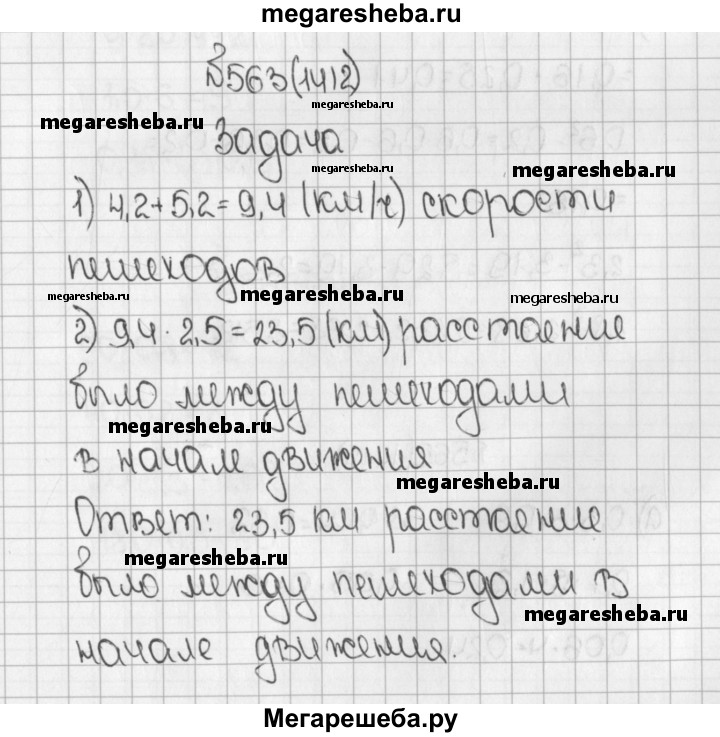 megaresheba.ru
№563(1412)
megaresheba.ru
megaresheba.ru
Задача
megaresheba.ru
megaresheba.ru
1) 4,2+5,2=9,4 (км/ч) скорости
пешеходов
megaresheba.ru
megaresheba.ru
megaresheba.ru
2) 9,4 · 2,5=23,5 (км) расстаение
было между пешеходами
megaresheba.ru
в начале движения
megaresheba.ru
Ответ: 23,5 км расстаение
megaresheba.ru
было между пешеходами в
megaresheba.ru
начале движения.
Мегарешеба.ру